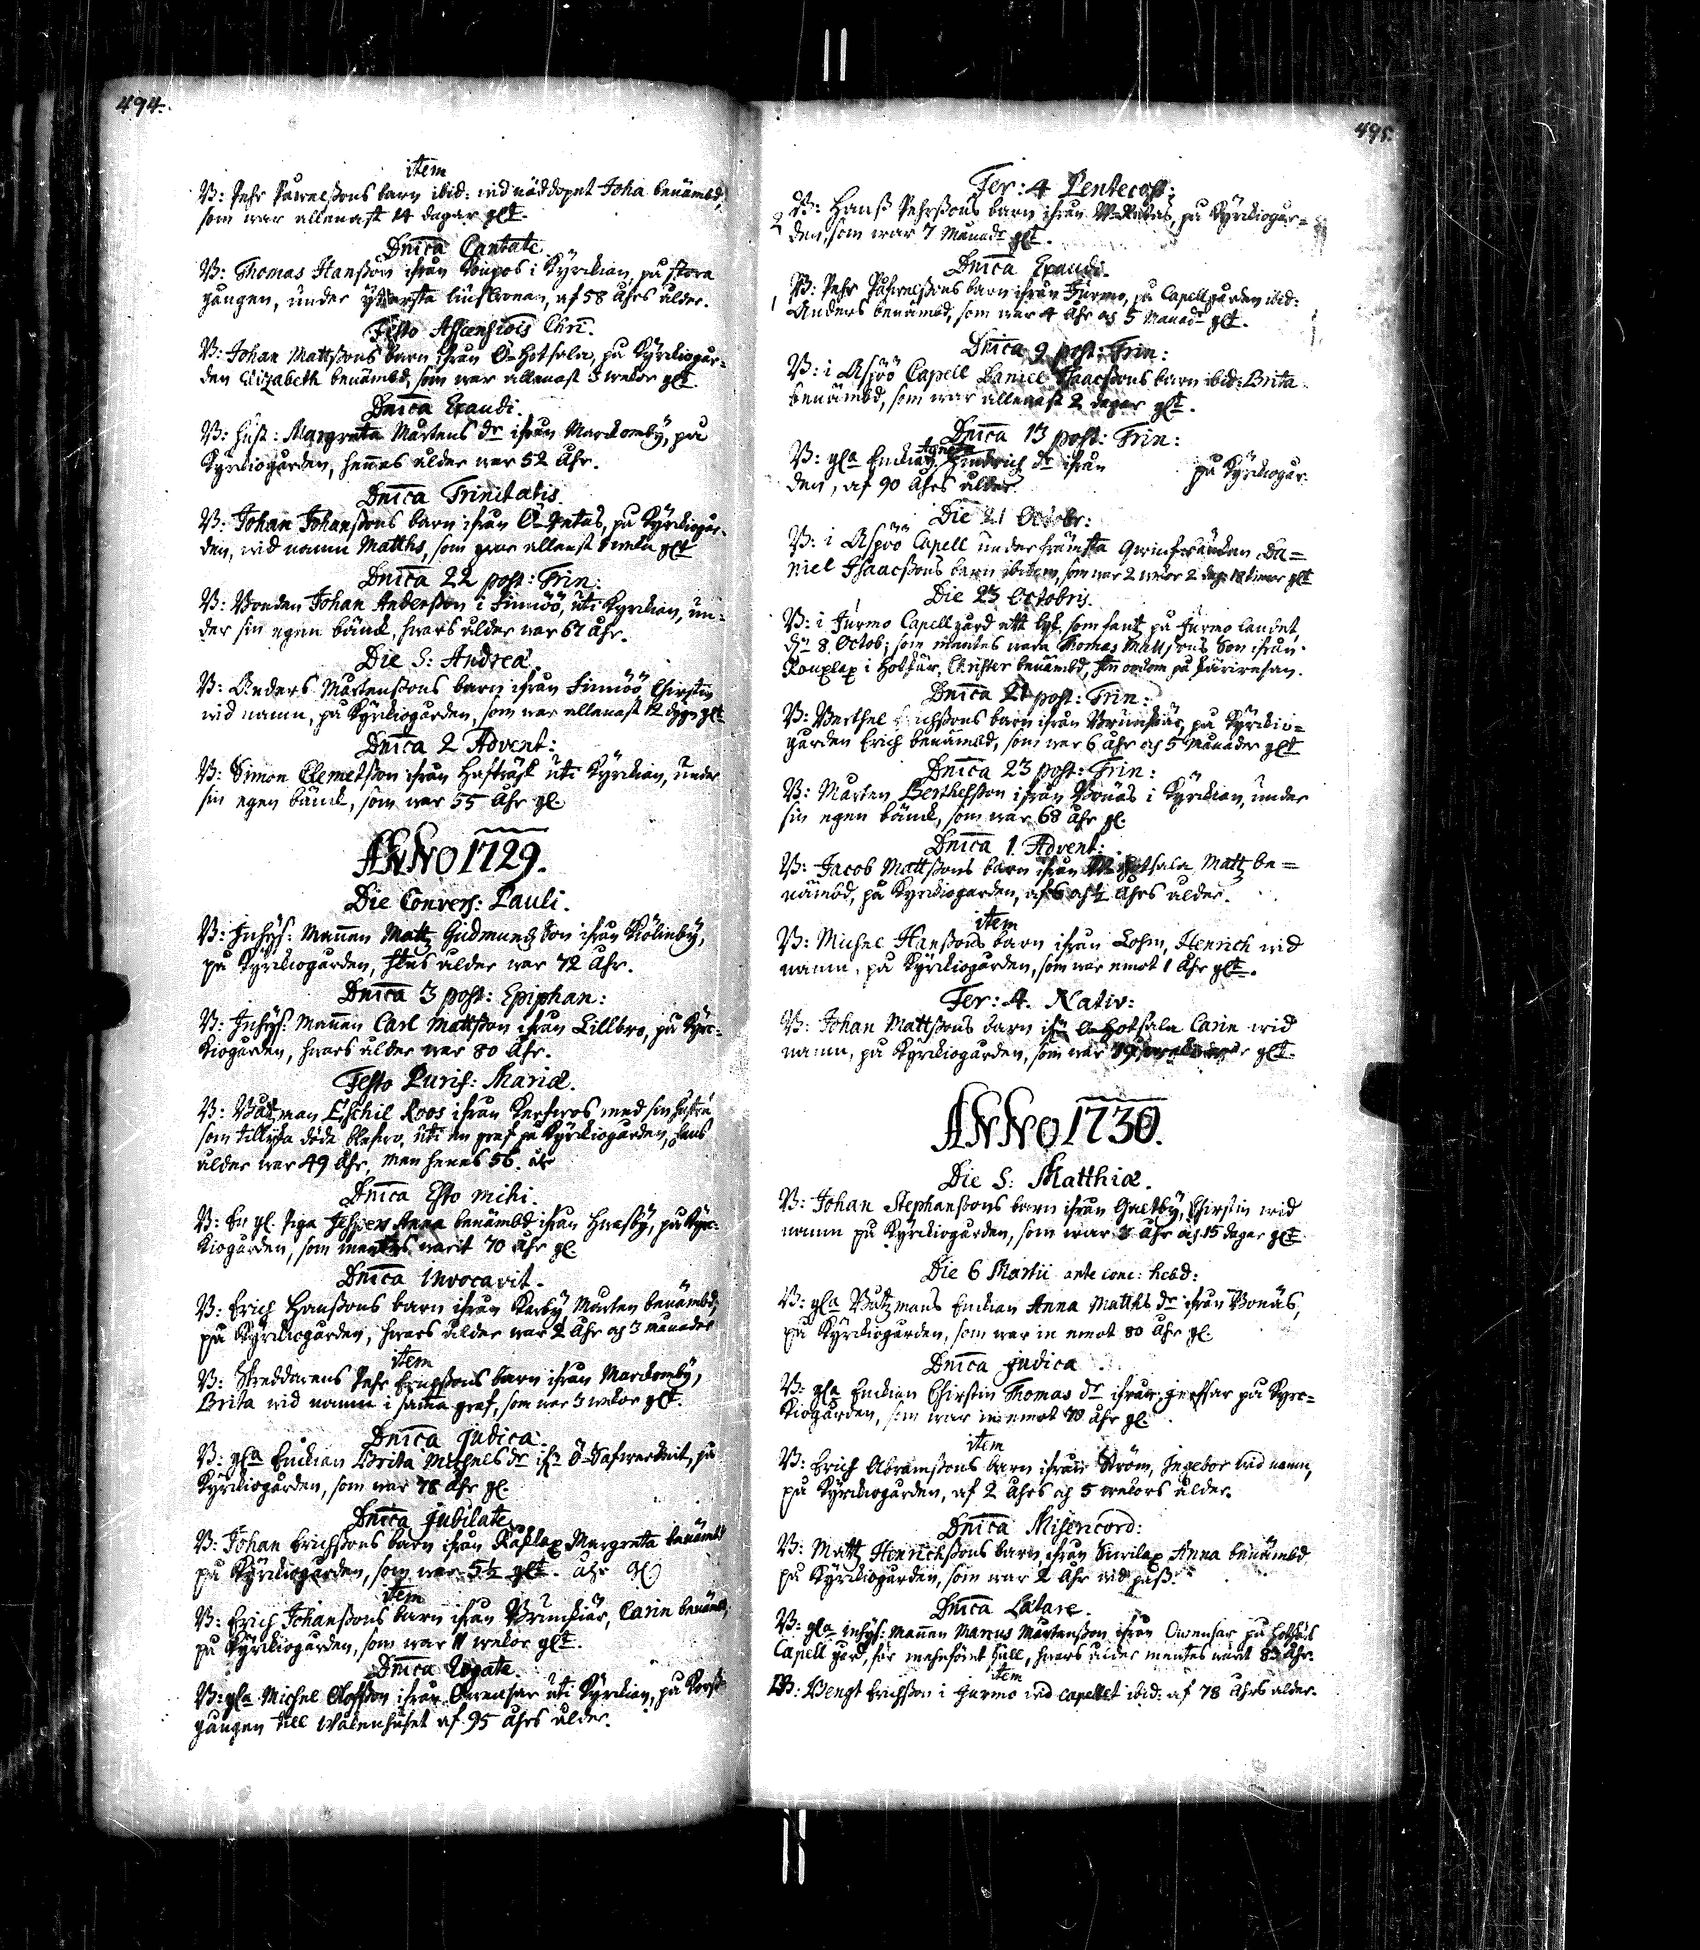 494.
item
B: Pehr Påwelssons barn ibid: wid nöddopet Joha benämbd,
som war allenast 14 dagar glt.
Dnica Cantate.
B: Thomas Hansson ifrån Koupos i Kyrckian, på stora
gången, under ytersta liuscronan, af 58 åhrs ålder.
Festo Ascensiois Chri.
B: Johan Mattssons barn ifrån Ö-Hotsala, på Kyrckiogår-
den Elizabeth benämbd, som war allenast 3 wekor glt
Dnica Exaudi.
B: Hust: Margreta Mårtens dr ifrån Marckomby, på
Kyrckiogården, hennes ålder war 52 åhr.
Dnica Trinitatis.
B: Johan Johanssons barn ifrån Ö-Yntas, på Kyrckiogår-
den, wid namn Matths, som war allenast weka glt
Dnica 22 post: Trin:
B: Bonden Johan Andersson i Finnöö, uti Kyrckian, un-
der sin egen bänck, hwars ålder war 67 åhr.
Die S: Andreæ.
B: Anders Mårtenssons barn ifrån Finnöö Chirstin
wid namn, på Kyrckiogården, som war allenast 12 dygn glt
Dnica 2 Advent:
B: Simon Clemetsson ifrån Hafträsk uti Kyrckian, under
sin egen bänck, som war 55 åhr gl.
ANNO 1729.
Die Convers: Pauli.
B: Inhys: Mannen Matz Gudmundz Son ifrån Kölinby,
på Kyrckiogården, hans ålder war 72 åhr.
Dnica 3 post: Epiphan:
B: Inhys: Mannen Carl Mattsson ifrån Lillbro, på Kyrc-
kiogården, hwars ålder war 80 åhr.
Festo Purif: Mariæ.
B: Båtzman Eschil Roos ifrån med sin hustru
som tillijka döde blefwo, uti en graf på Kyrckiogården, hans
ålder war 49 åhr, men henes 56. åhr
Dnica Esto mihi.
B: En gl. Piga Jespers Anna benämbd ifrån Hwesby, på Kyrc-
kiogården, som mentes warit 70 åhr gl
Dnica Invocavit.
B: Erich Hanssons barn ifrån Karby Mårten benämbd,
på Kyrckiogården, hwars ålder war 2 åhr och 3 månader
item
B: Skreddarens Pehr barn ifrån Marckomby,
Brita wid namn i samma graf, som war 3 wekor glt.
Dnica Judica:
B: gla Enckian Brita Michels dr ifr Ö-Dahwerkeut, på
Kyrckiogården, som war 78 åhr gl.
Dnica Jubilate.
B: Johan Erichssons barn ifrån Käslax Margreta benämbd
på Kyrckiogården, som war 5½ glt. åhr
item
B: Erich Johanssons barn ifrån Brunskär, Carin benämbd,
på Kyrckiogården, som war 11 wekor glt.
Dnica Rogate.
B: gla Michel Olofsson ifrån Owensar uti Kyrckian, på Korss-
gången till Wakenhuset af 95 åhrs ålder.
495.
Fer: 4 Pentecost:
2 B: Hans Pehrssons barn ifrån W-Rutas, på Kyrckiogår-
den, som war 7 Månadr glt.
Dnica Exaudi.
1 B: Pehr Påhwelssons barn ifrån Jurmo, på Capellgården ibid:
Anders benämbd, som war 4 åhr och 5 Månadr glt.
Dnica 9 post: Trin:
B: i Aspöö Capell Daniel Isaacssons barn ibid: Brita
benämbd, som war allenast 2 dagar glt.
Dnica 13 post: Trin:
B: gla Enckian Agneta Hindrich dr ifrån på Kyrckiogår-
den, af 90 åhrs ålder.
Die 21 Octobr:
B: i Aspöö Capell under främsta Qwinfbäncken Da-
niel Isaacssons barn ibidem, som war 2 wekor 2 dag: 18 timar glt
Die 23 Octobris.
B: i Jurmo Capellgård ett lijk som fantz på Jurmo landet
d: 8. Octob; som mentes wara Thomas Mattssons Son ifrån
i Hotskär, Christer benämbd,
Dnica 21 post: Trin:
B: Berthel Erichssons barn ifrån Brunskär, på Kyrckio-
gården Erich benämbd, som war 6 åhr och 5 Månader glt
Dnica 23 post: Trin:
B: Mårten Berthelsson ifrån Bonäs i Kyrckian, under
sin egen bänck, som war 68 åhr gl.
Dnica 1. Advent:
B: Jacob Mattssons barn ifrån W-Hotsala Matz be-
nämbd, på Kyrckiogården, af 6 och ½ åhrs ålder.
item
B: Michel Hanssons barn ifrån Lohm, Henrich wid
namn, på Kyrckiogården, som war emot 1 åhr glt.
Fer: 4. Nativ:
B: Johan Mattssons barn ifrå Hotsala Carin wid
namn, på Kyrckiogården, som war glt.
ANNO 1730.
Die S: Matthiæ.
B: Johan Stephanssons barn ifrån Galtby, Chirstin wid
namn på Kyrckiogården, som war 3 åhr och 15 dagar glt
Die 6 Martii ante conc: hebd:
B: gla Båtzmans Enckian Anna Matths dr ifrån Bonäs,
på Kyrckiogården, som war in emot 80 åhr gl.
Dnica Judica
B: gla Enckian Chirstin Thomas dr ifrån på Kyrc-
kiogården, som war in emot 70 åhr gl.
item
B: Erich Abramssons barn ifrån Ström, Ingebor wid namn,
på Kyrckiogården, af 2 åhrs och 5 wekors ålder.
Dnica Misericord:
B: Matz Henrichssons barn, ifrån Anna benämbd
på Kyrckiogården, som war 2 åhr wid pass.
Dnica Lätare.
B: gla inhys: Mannen Marcus Mårtensson ifrån Owensar på Hotskärs
Capellgård, hwars ålder mentes warit 83 åhr.
item
B: Bengt Erichsson i Jurmo wid Capellet ibid: af 78 åhrs ålder.